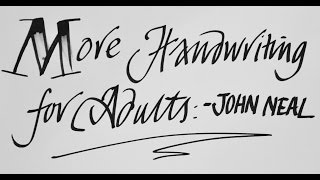 More Handwriting
for Adults: -JOHN NEAL